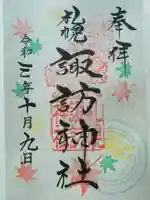 奉拝
札幌
諏訪神社
令和三年十月九日